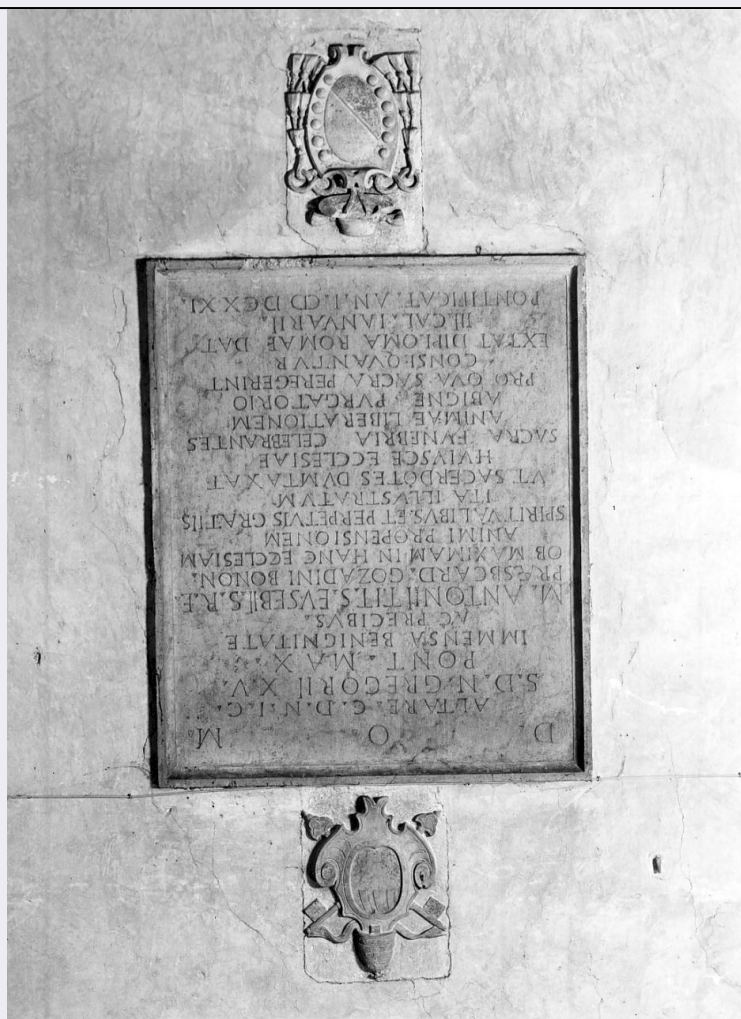 D. O M
ALTARE. C. D. N. I. C.
S. D. N. GREGORII X V.
PONT. MAX.
IMMENSA BENIGNITATE
AC PRECIBVS.
M. ANTONII TIT. S. EVSEBII. S. R. E.
PRÆSB CARD. GOZADINI BONON.
OB MAXIMAM IN HANC ECCLESIAM
ANIMI PROPENSIONEM
SPIRITVALIBVS ET PERPETVIS GRATIIS
ITA ILLVSTRATVM
VT SACERDOTES DVMTAXAT
HVIVSCE ECCLESIAE
SACRA FVNEBRIA CELEBRANTES
ANIMAE LIBERATIONEM
ABIGNE PVRGATORIO
PRO QVA SACRA PEREGERINT
CONSEQVANTVR
EXTAT DIPLOMA ROMAE DAT.
III. CAL. IANVARII.
PONTIFICAT. AN. I. CD DCXXI.